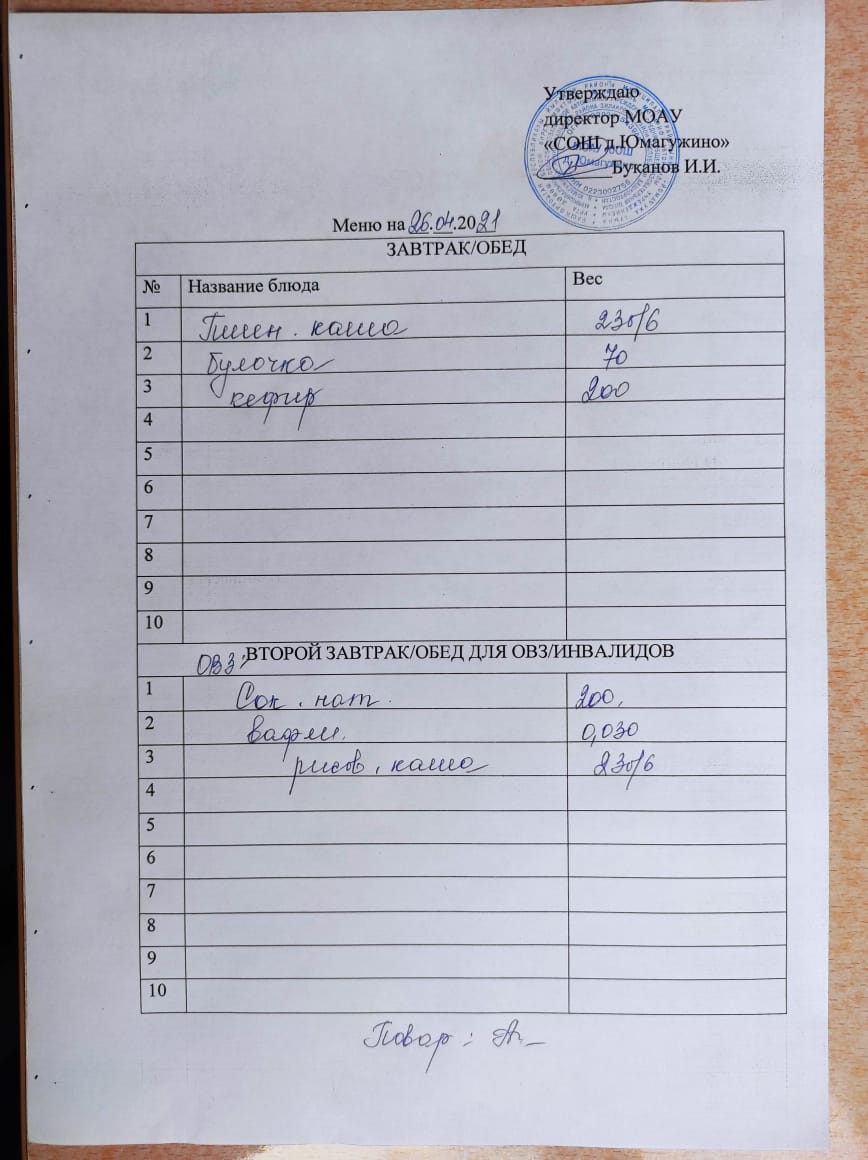 Утверждаю
директор МОАУ
«СОШ д.Юмагужино»
Буканов И.И.
Меню на 26.04.2021
ЗАВТРАК/ОБЕД
№ Название блюда Вес
1 Пшен. каша 230/6
2 Булочка 70
3 кефир 200
4
5
6
7
8
9
10
ОВЗ: ВТОРОЙ ЗАВТРАК/ОБЕД ДЛЯ ОВЗ/ИНВАЛИДОВ
1 Сок. нат. 200,
2 вафли. 0,030
3 рисов, каша 230/6
4
5
6
7
8
9
10
Повар: